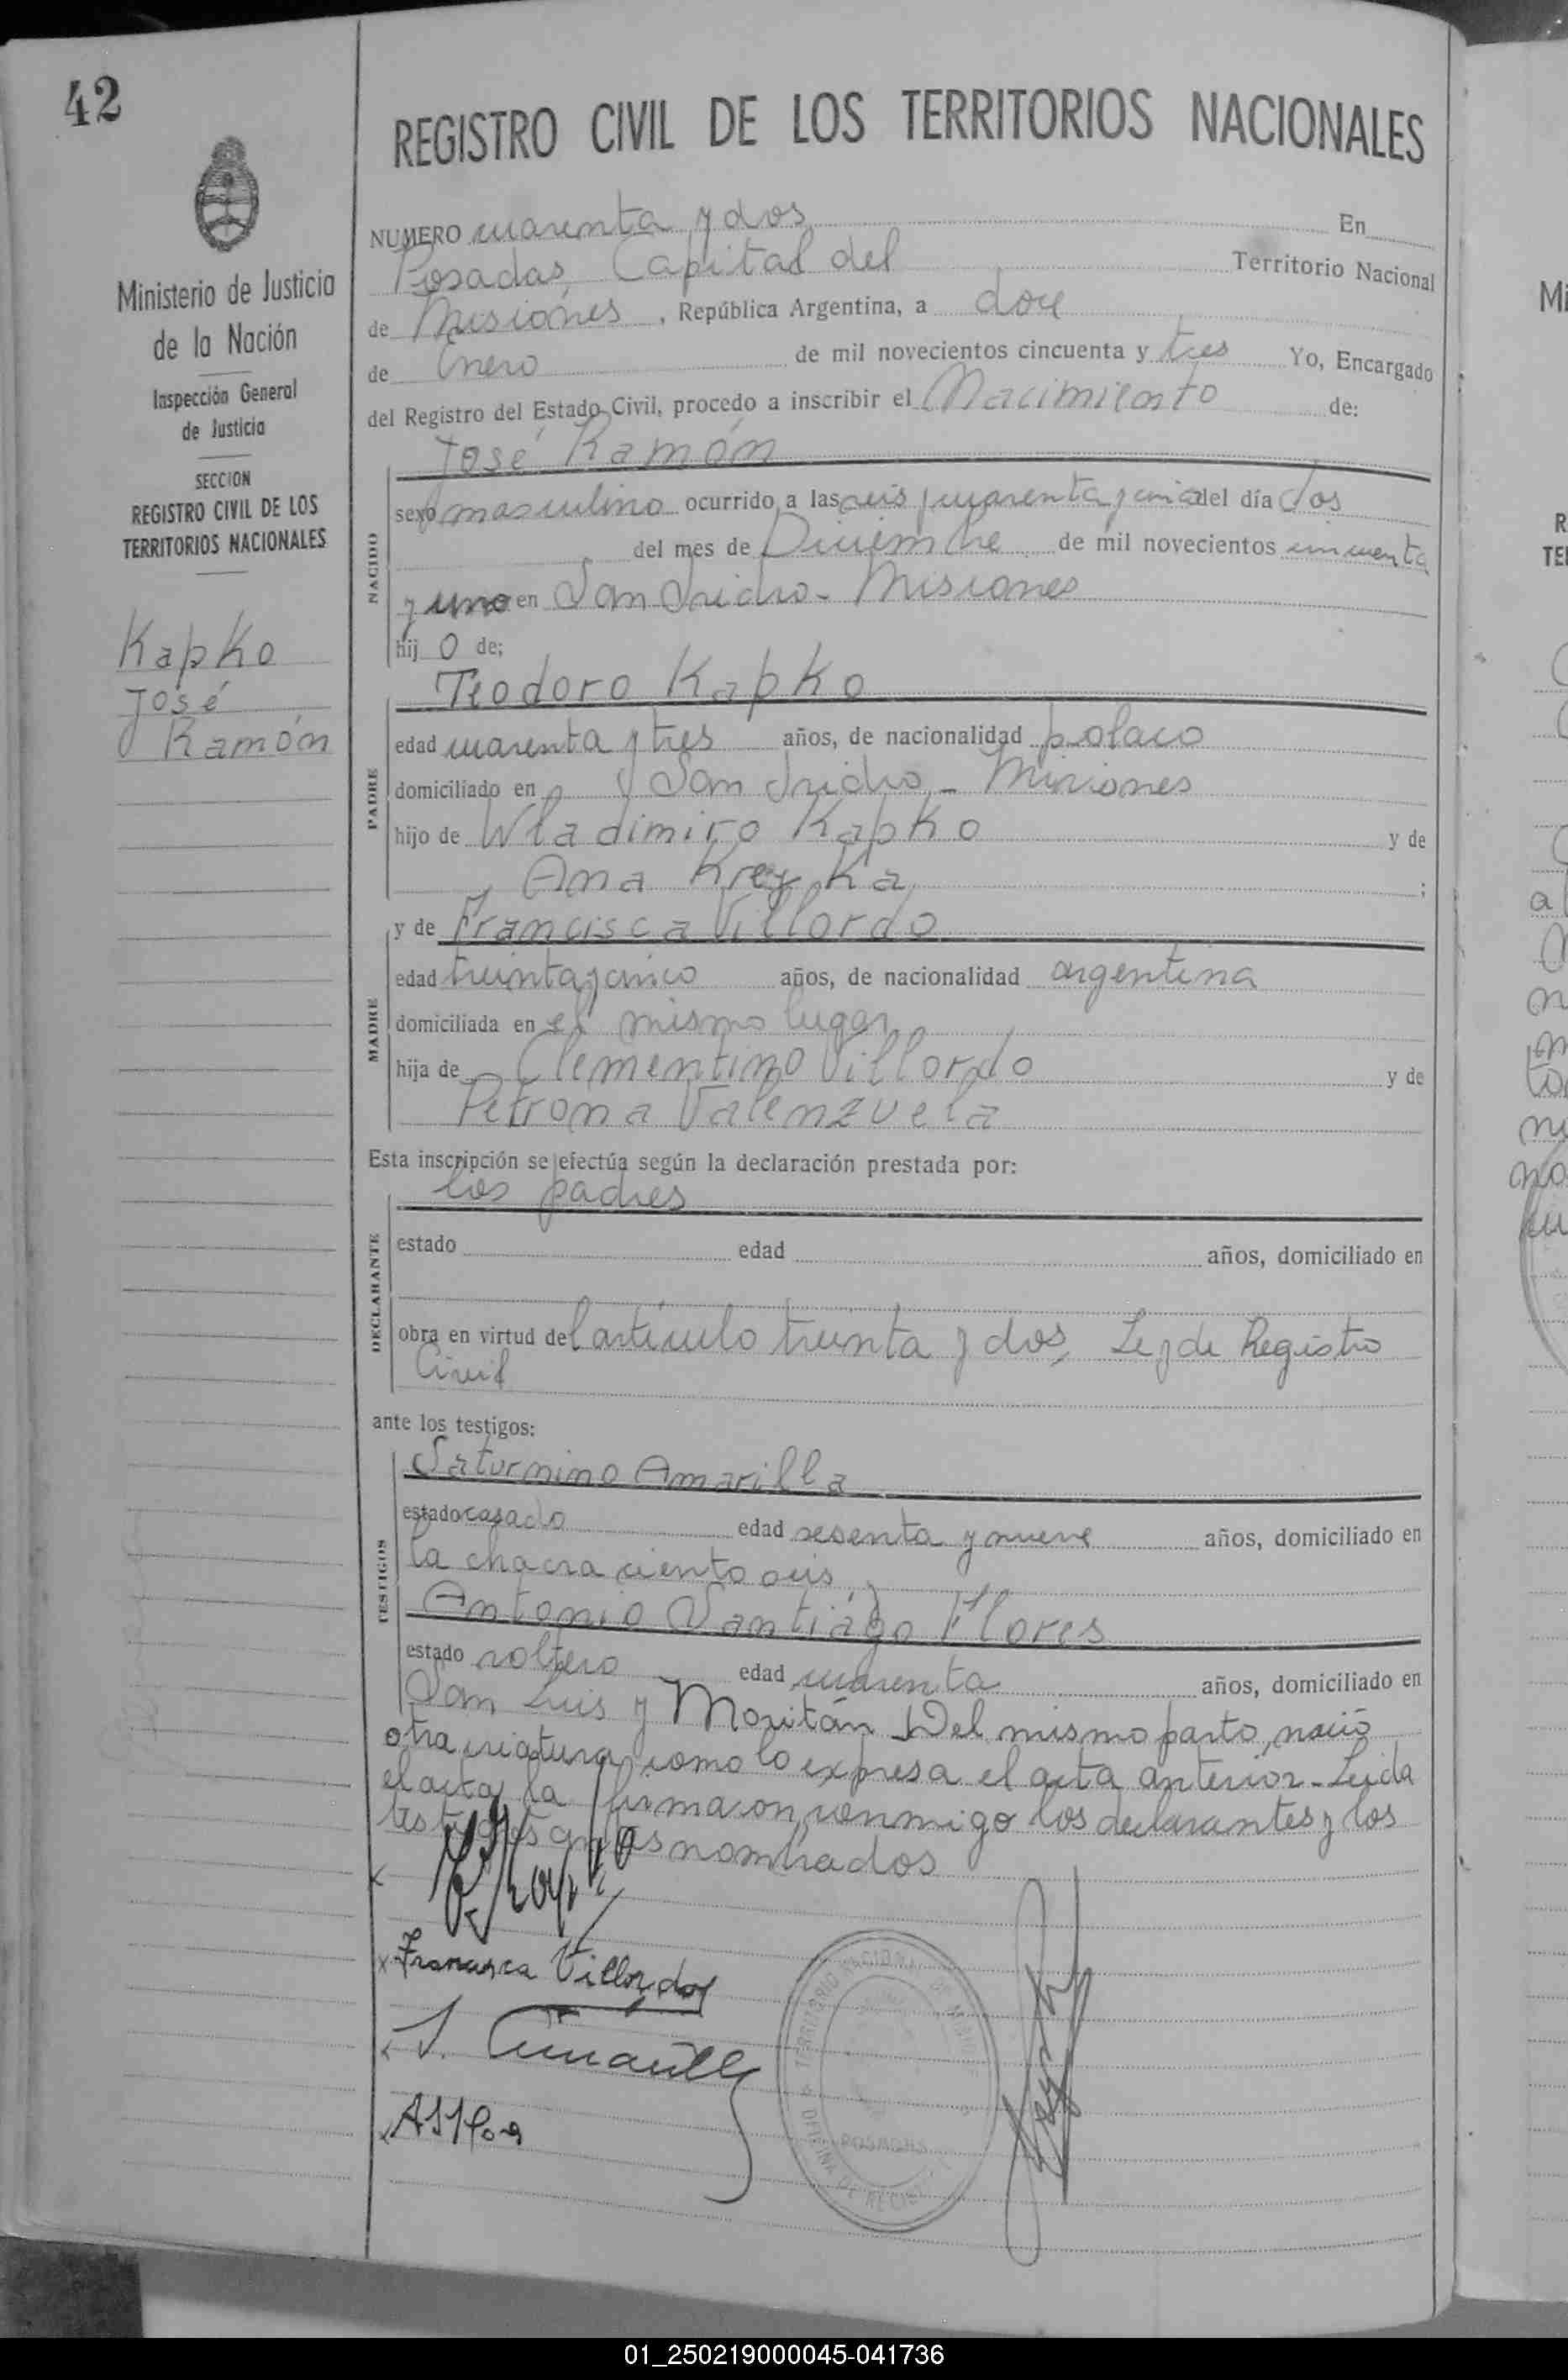 42
Ministerio de Justicia
de la Nación
Inspección General
de Justicia
SECCION
REGISTRO CIVIL DE LOS
TERRITORIOS NACIONALES
Kapko
José
Ramón
REGISTRO CIVIL DE LOS TERRITORIOS NACIONALES
NUMERO cuarenta y dos En
Posadas, Capital del Territorio Nacional
de Misiones, República Argentina, a doce
de Enero de mil novecientos cincuenta y tres Yo, Encargado
del Registro del Estado Civil, procedo a inscribir el Nacimiento de:
José Ramón
NACIDO
sexo masculino ocurrido a las seis y cuarenta y cinco del día dos
del mes de Diciembre de mil novecientos cincuenta
y uno en San Isidro - Misiones
hij o de;
Teodoro Kapko
PADRE
edad cuarenta y tres años, de nacionalidad polaco
domiciliado en San Isidro - Misiones
hijo de Wladimiro Kapko y de
Ana ;
y de Francisca Villordo
MADRE
edad treinta y cinco años, de nacionalidad argentina
domiciliada en el mismo lugar
hija de Clementino Villordo y de
Petrona Valenzuela
Esta inscripción se efectúa según la declaración prestada por:
los padres
DECLARANTE
estado edad años, domiciliado en
obra en virtud del artículo treinta y dos, Ley de Registro
Civil
ante los testigos:
Saturnino Amarilla
TESTIGOS
estado casado edad sesenta y nueve años, domiciliado en
la chacra ciento seis y
Antonio Santiago Flores
estado soltero edad cuarenta años, domiciliado en
San Luis y Moritán Del mismo parto, nació
otra criatura como lo expresa el acta anterior - Leida
el acta, la firmaron conmigo los declarantes y los
testigos antes nombrados
Francisca Villordo
S. Amarilla
TERRITORIO NACIONAL DE MISIONES
POSADAS
OFICINA DE REGISTRO
01_250219000045-041736